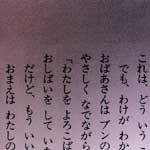 これは、どういう こ
でも、わけが わか
おばあさんは ブンの
やさしく なでながら
「わたしを よろこば
おしばいを して いた
だけど、もう いい
おまえは わたしの